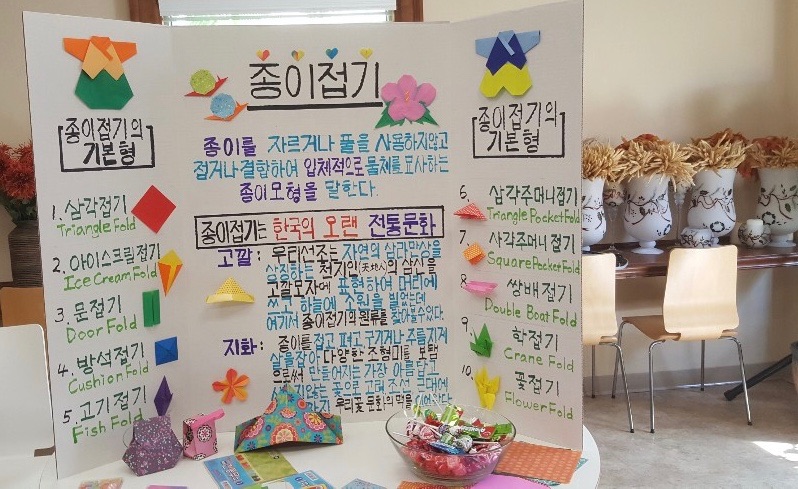 종이접기의
기본형
1. 삼각접기
Triangle Fold
2. 아이스크림접기
Ice Cream Fold
3. 문접기
Door Fold
4. 방석접기
Cushion Fold
5. 고기접기
Fish Fold
종이접기
종이를 자르거나 풀을 사용하지않고
접거나 결합하여 입체적으로 물체를 묘사하는
종이모형을 말한다.
종이접기는 한국의 오랜 전통문화
고깔: 우리선조는 자연의 삼라만상을
상징하는 천지인(天地人)의 삼신을
고깔모자에 표현하여 머리에
쓰고 하늘에 소원을 빌었는데
여기서 종이접기의 원류를 찾아볼수있다.
지화: 종이를 접고 펴고 구기거나 주름지게
살을잡아 다양한 조형미를 보탬
으로써 만들어지는 가장 아름답고
꽃으로 고려 조선 근대에
우리꽃 문화의 맥을
종이접기의
기본형
6. 삼각주머니접기
Triangle Pocket Fold
7. 사각주머니접기
Square Pocket Fold
8. 쌍배접기
Double Boat Fold
9. 학접기
Crane Fold
10. 꽃접기
Flower Fold